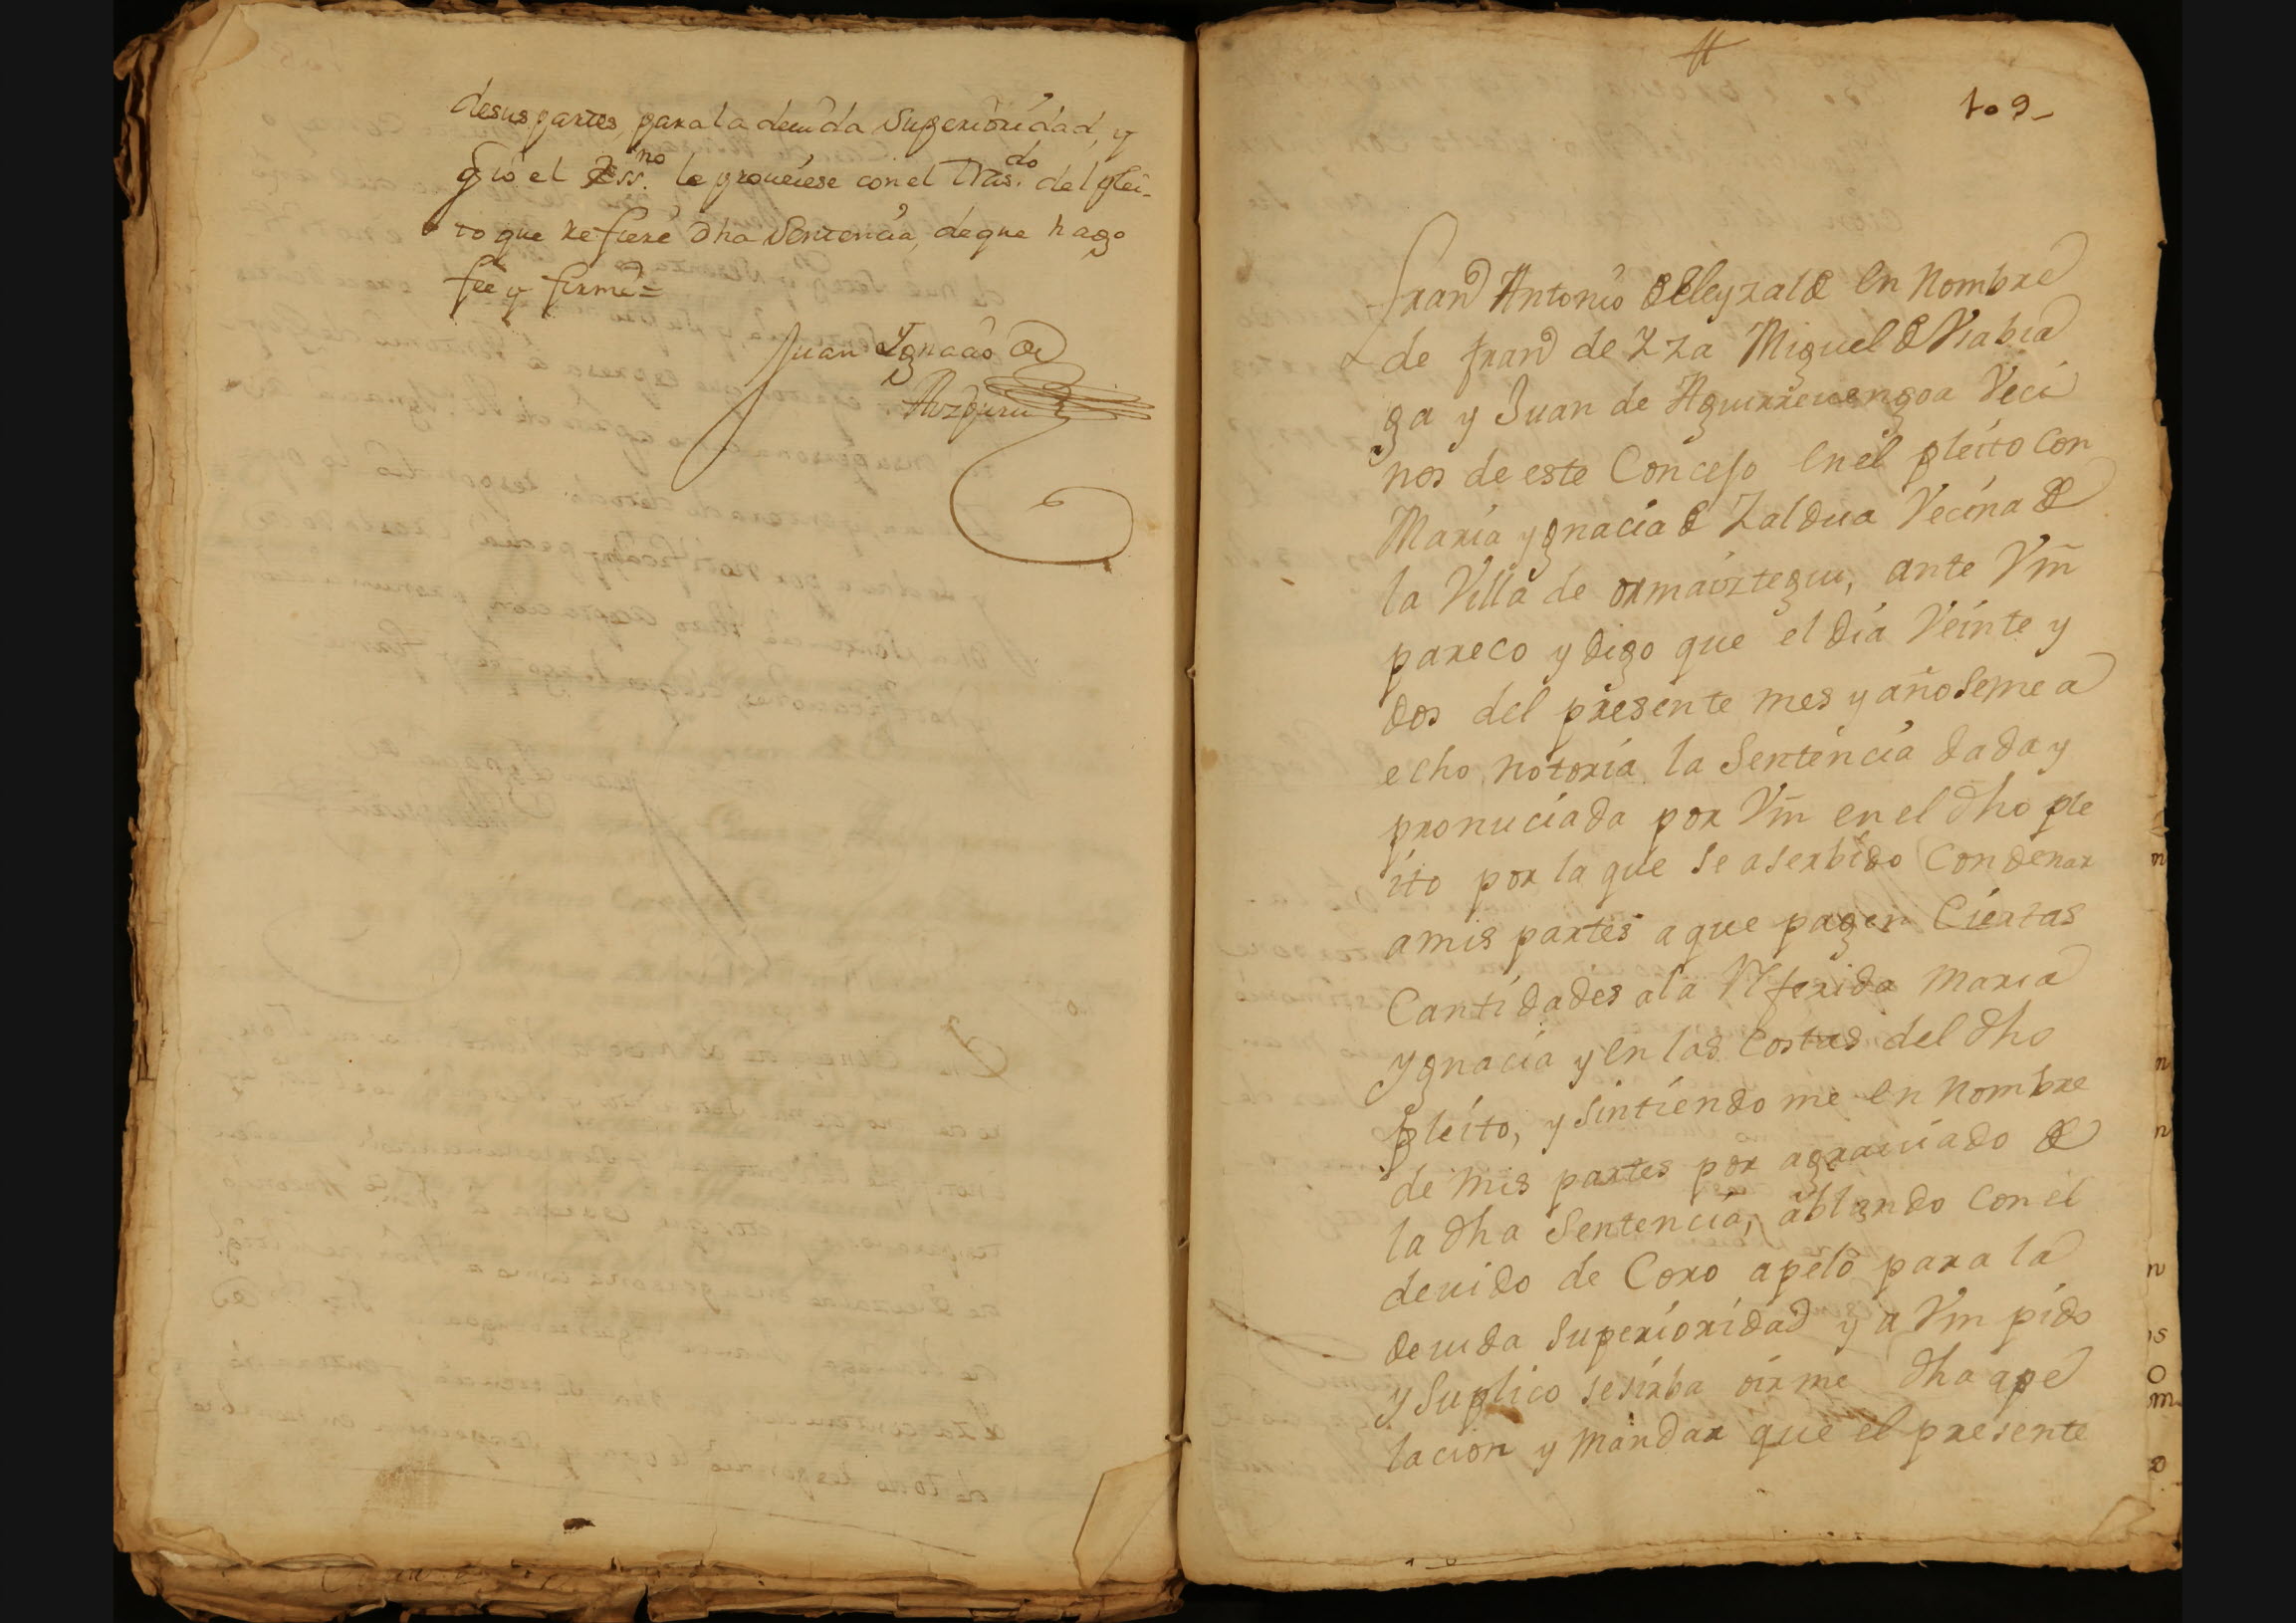 desus partes, para la deuida Superioridad, y
pidio el Ess.no le proueiese con el tras.do del plei-
to que refiere dha Sentencia, de que hago
feé y firmé =
Juan Ygnacio de
109-
Fran.co Antonio de Eleyzalde en nombre
de Fran.co de Yza Miguel de Viabia
ga y Juan de Aguirreuengoa Veci
nos de este Concejo en el pleito con
Maria ygnacia de Zaldua Vecina de
la Villa de ormaiztegui, ante Vm
pareco y digo que el dia Veinte y
dos del presente mes y año seme a
echo notoria la Sentencia dada y
pronuciada por Vm en el dho ple
ito por la que se aserbido Condenar
amis partes a que pagen Ciertas
Cantidades ala Referida Maria
Ygnacia y en las Costas del dho
pleito, y sintiendo me en nombre
de mis partes por agrauiado de
la dha Sentencia, ablando con el
deuido de Coro apelo para la
deuida Superioridad y a Vm pido
y Suplico sesirba oirme dha ape
lacion y mandar que el presente